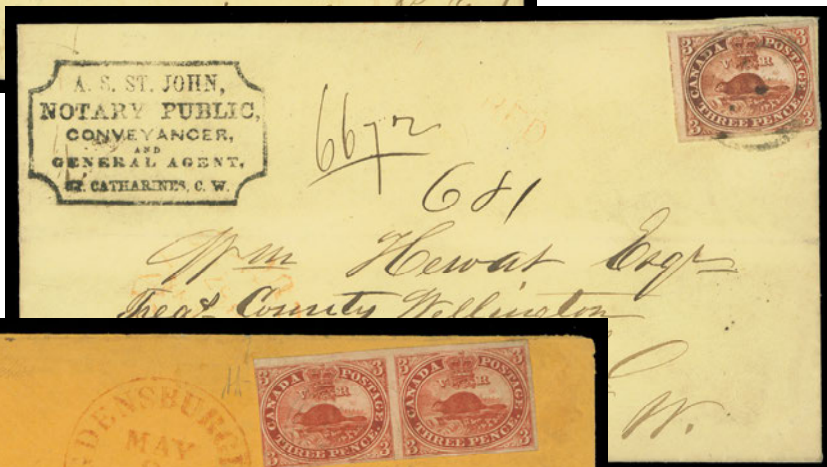 A. S. ST. JOHN,
NOTARY PUBLIC,
CONVEYANCER,
AND
GENERAL AGENT,
ST. CATHARINES, C. W.
3 CANADA POSTAGE 3
V R
3 THREE PENCE 3
6672
681
Wm Hewat Esqr
Treasr County Wellington
W.
DENSBURGH
MAY
3 CANADA POSTAGE 3
V R
3 THREE PENCE 3
3 CANADA POSTAGE 3
V R
3 THREE PENCE 3